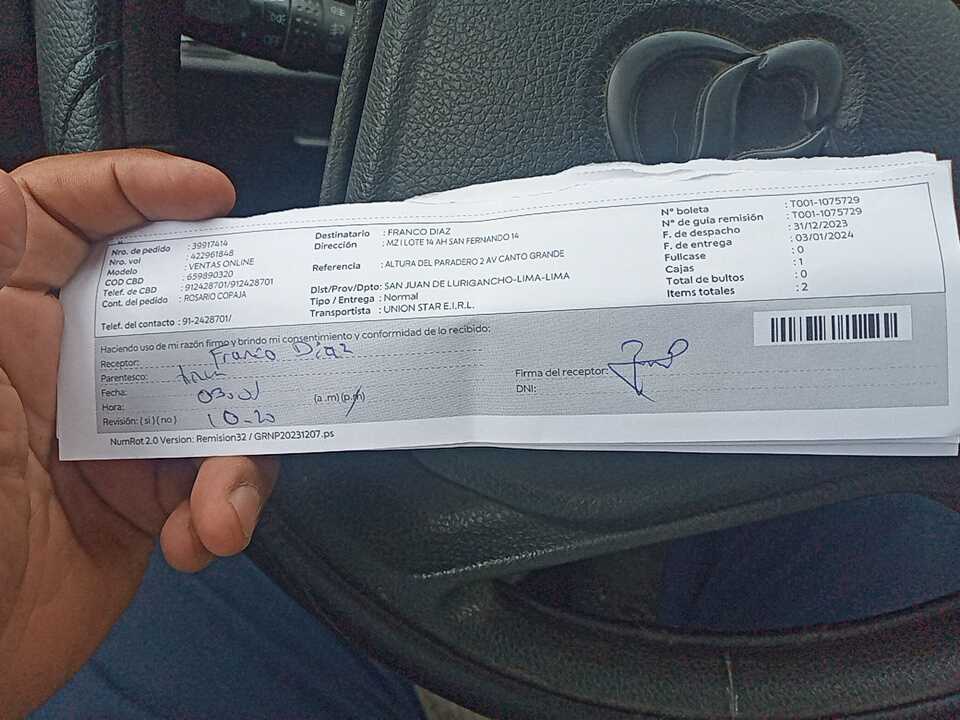 Nro. de pedido : 39917414
Nro. vol : 422961848
Modelo : VENTAS ONLINE
COD CBD : 659890320
Telef. de CBD : 912428701/912428701
Cont. del pedido : ROSARIO COPAJA
Telef. del contacto : 91-2428701/
Destinatario : FRANCO DIAZ
Dirección : MZ I LOTE 14 AH SAN FERNANDO 14
Referencia : ALTURA DEL PARADERO 2 AV CANTO GRANDE
Dist/Prov/Dpto: SAN JUAN DE LURIGANCHO-LIMA-LIMA
Tipo / Entrega : Normal
Transportista : UNION STAR E.I.R.L.
N° boleta : T001-1075729
N° de guía remisión : T001-1075729
F. de despacho : 31/12/2023
F. de entrega : 03/01/2024
Fullcase : 0
Cajas : 1
Total de bultos : 0
Items totales : 2
Haciendo uso de mi razón firmo y brindo mi consentimiento y conformidad de lo recibido:
Receptor: Franco Díaz
Parentesco:
Fecha: 03.01
Hora: 10-20 (a .m) (p.m)
Revisión: ( si ) ( no )
Firma del receptor:
DNI:
NumRot 2.0 Version: Remision32 / GRNP20231207.ps